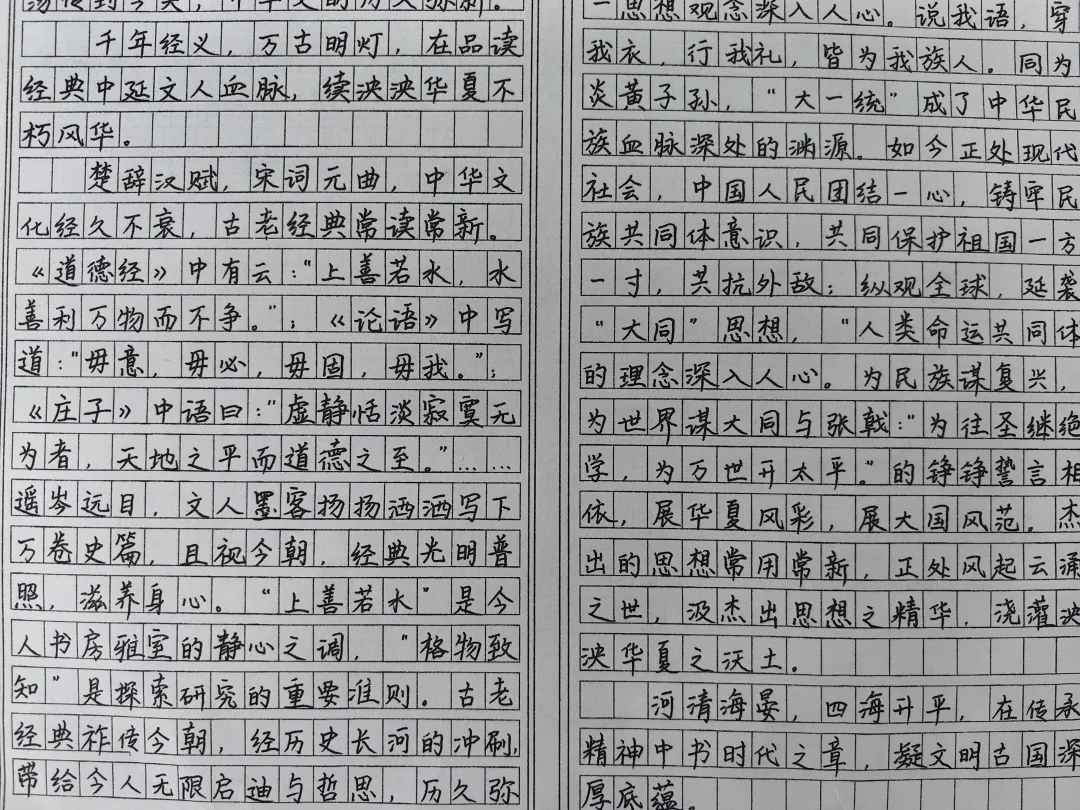 千年经义，万古明灯，在品读
经典中延文人血脉，续泱泱华夏不
朽风华。
楚辞汉赋，宋词元曲，中华文
化经久不衰，古老经典常读常新。
《道德经》中有云：“上善若水，水
善利万物而不争。”；《论语》中写
道：“毋意，毋必，毋固，毋我。”；
《庄子》中语曰：“虚静恬淡寂寞无
为者，天地之平而道德之至。”……
遥岑远目，文人墨客扬扬洒洒写下
万卷史篇，且视今朝，经典光明普
照，滋养身心。“上善若水”是今
人书房雅室的静心之调，“格物致
知”是探索研究的重要准则。古老
经典祚传今朝，经历史长河的冲刷，
带给今人无限启迪与哲思，历久弥
一思想观念深入人心。说我语，穿
我衣，行我礼，皆为我族人。同为
炎黄子孙，“大一统”成了中华民
族血脉深处的渊源。如今正处现代
社会，中国人民团结一心，铸牢民
族共同体意识，共同保护祖国一方
一寸，共抗外敌；纵观全球，延袭
“大同”思想，“人类命运共同体
的理念深入人心。为民族谋复兴，
为世界谋大同与张戟：“为往圣继绝
学，为万世开太平。”的铮铮誓言相
依，展华夏风彩，展大国风范。杰
出的思想常用常新，正处风起云涌
之世，汲杰出思想之精华，浇灌泱
泱华夏之沃土。
河清海晏，四海升平，在传承
精神中书时代之章，凝文明古国深
厚底蕴。